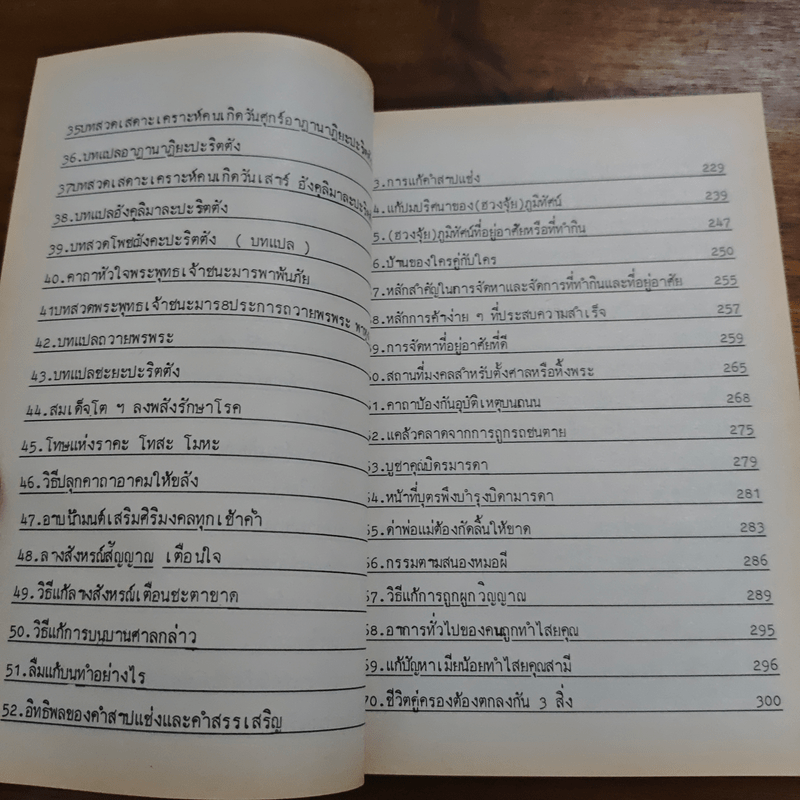 35บทสวดเสดาะเคราะห์คนเกิดวันศุกร์อาฏานาฏิยะปะริตตัง
36.บทแปลอาฏานาฏิยะปะริตตัง
37บทสวดเสดาะเคราะห์คนเกิดวันเสาร์ อังคุลิมาละปะริตตัง
38.บทแปลอังคุลิมาละปะริตตัง
39.บทสวดโพชฌังคะปะริตตัง ( บทแปล )
40.คาถาหัวใจพระพุทธเจ้าชนะมารพาพันภัย
41บทสวดพระพุทธเจ้าชนะมาร8ประการถวายพรพระ
42.บทแปลถวายพรพระ
43.บทแปลชะยะปะริตตัง
44.สมเด็จโต ฯ ลงพลังรักษาโรค
45.โทษแห่งราคะ โทสะ โมหะ
46.วิธีปลุกคาถาอาคมให้ขลัง
47.อาบน้ำมนต์เสริมศิริมงคลทุกเช้าค่ำ
48.ลางสังหรณ์สัญญาณ เตือนใจ
49.วิธีแก้ลางสังหรณ์เตือนชะตาขาด
50.วิธีแก้การบนบานศาลกล่าว
51.ลืมแก้บนทำอย่างไร
52.อิทธิพลของคำสาปแช่งและคำสรรเสริญ
3.การแก้คำสาปแช่ง 229
4.แก้ปมปริศนาของ(ฮวงจุ้ย)ภูมิทัศน์ 239
5.(ฮวงจุ้ย)ภูมิทัศน์ที่อยู่อาศัยหรือที่ทำกิน 247
6.บ้านของใครคู่กับใคร 250
7.หลักสำคัญในการจัดหาและจัดการที่ทำกินและที่อยู่อาศัย 255
8.หลักการค้าง่าย ๆ ที่ประสบความสำเร็จ 257
9.การจัดหาที่อยู่อาศัยที่ดี 259
0.สถานที่มงคลสำหรับตั้งศาลหรือหิ้งพระ 265
61.คาถาป้องกันอุบัติเหตุบนถนน 268
62.แคล้วคลาดจากการถูกรถชนตาย 275
63.บูชาคุณบิดรมารดา 279
64.หน้าที่บุตรพึงบำรุงบิดามารดา 281
65.ด่าพ่อแม่ต้องกัดลิ้นให้ขาด 283
66.กรรมตามสนองหมอผี 286
67.วิธีแก้การถูกผูกวิญญาณ 289
68.อาการทั่วไปของคนถูกทำไสยคุณ 295
69.แก้ปัญหาเมียน้อยทำไสยคุณสามี 296
70.ชีวิตคู่ครองต้องตกลงกัน 3 สิ่ง 300